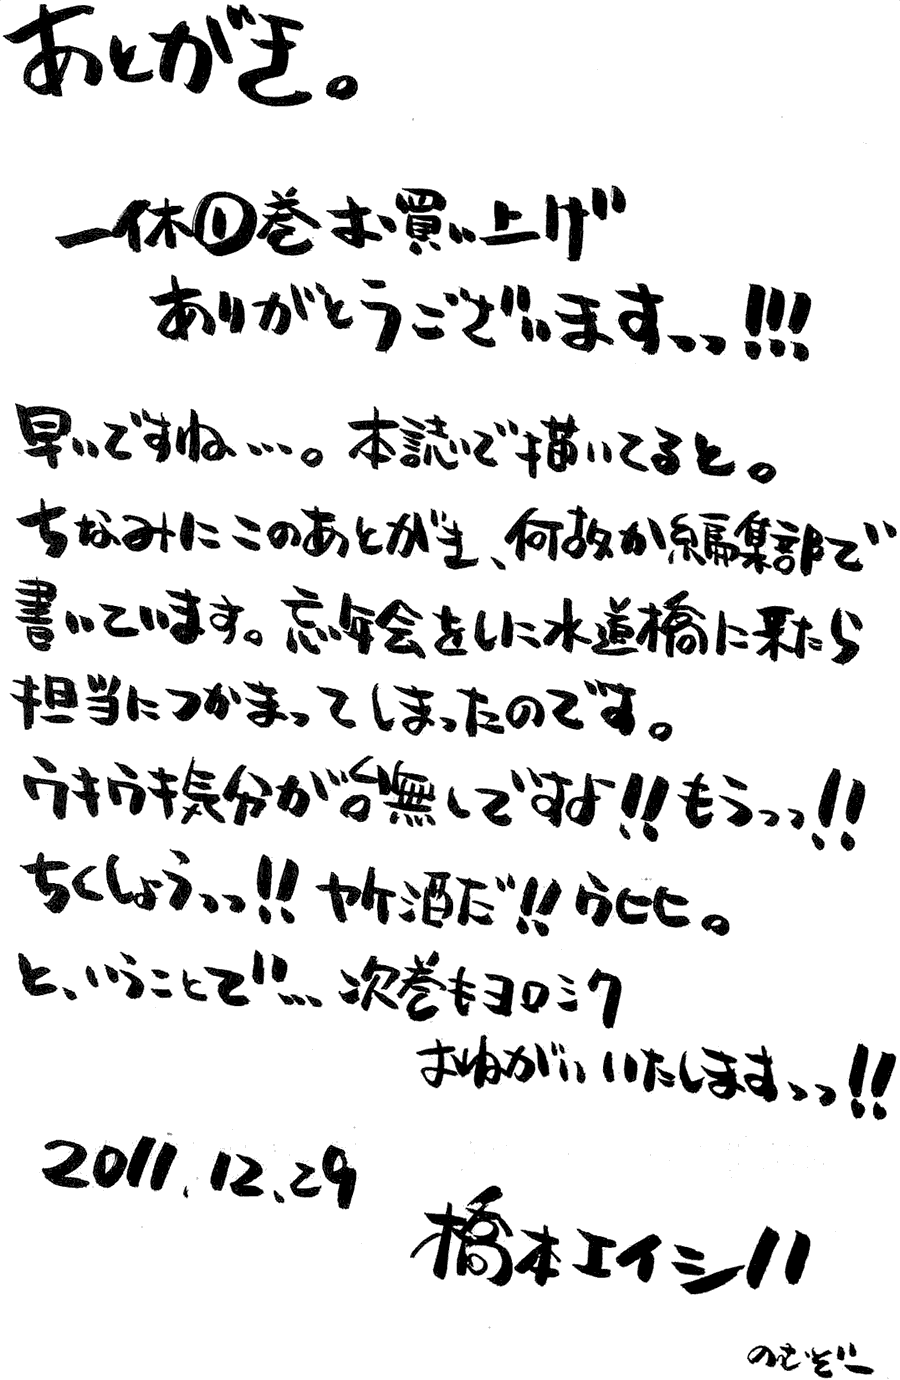 あとがき。
一休⑪巻お買い上げ
ありがとうございますっっ!!!
早いですね…。本誌で描いてると。
ちなみにこのあとがき、何故か編集部で
書いています。忘年会をしに水道橋に来たら
担当につかまってしまったのです。
ウキウキ気分が台無しですよ!!もうっっ!!
ちくしょうっっ!!ヤケ酒だ!!ウヒヒ。
と、いうことで…次巻もヨロシク
おねがいいたしますっっ!!
2011.12.29
橋本エイジ!!
のむぞー